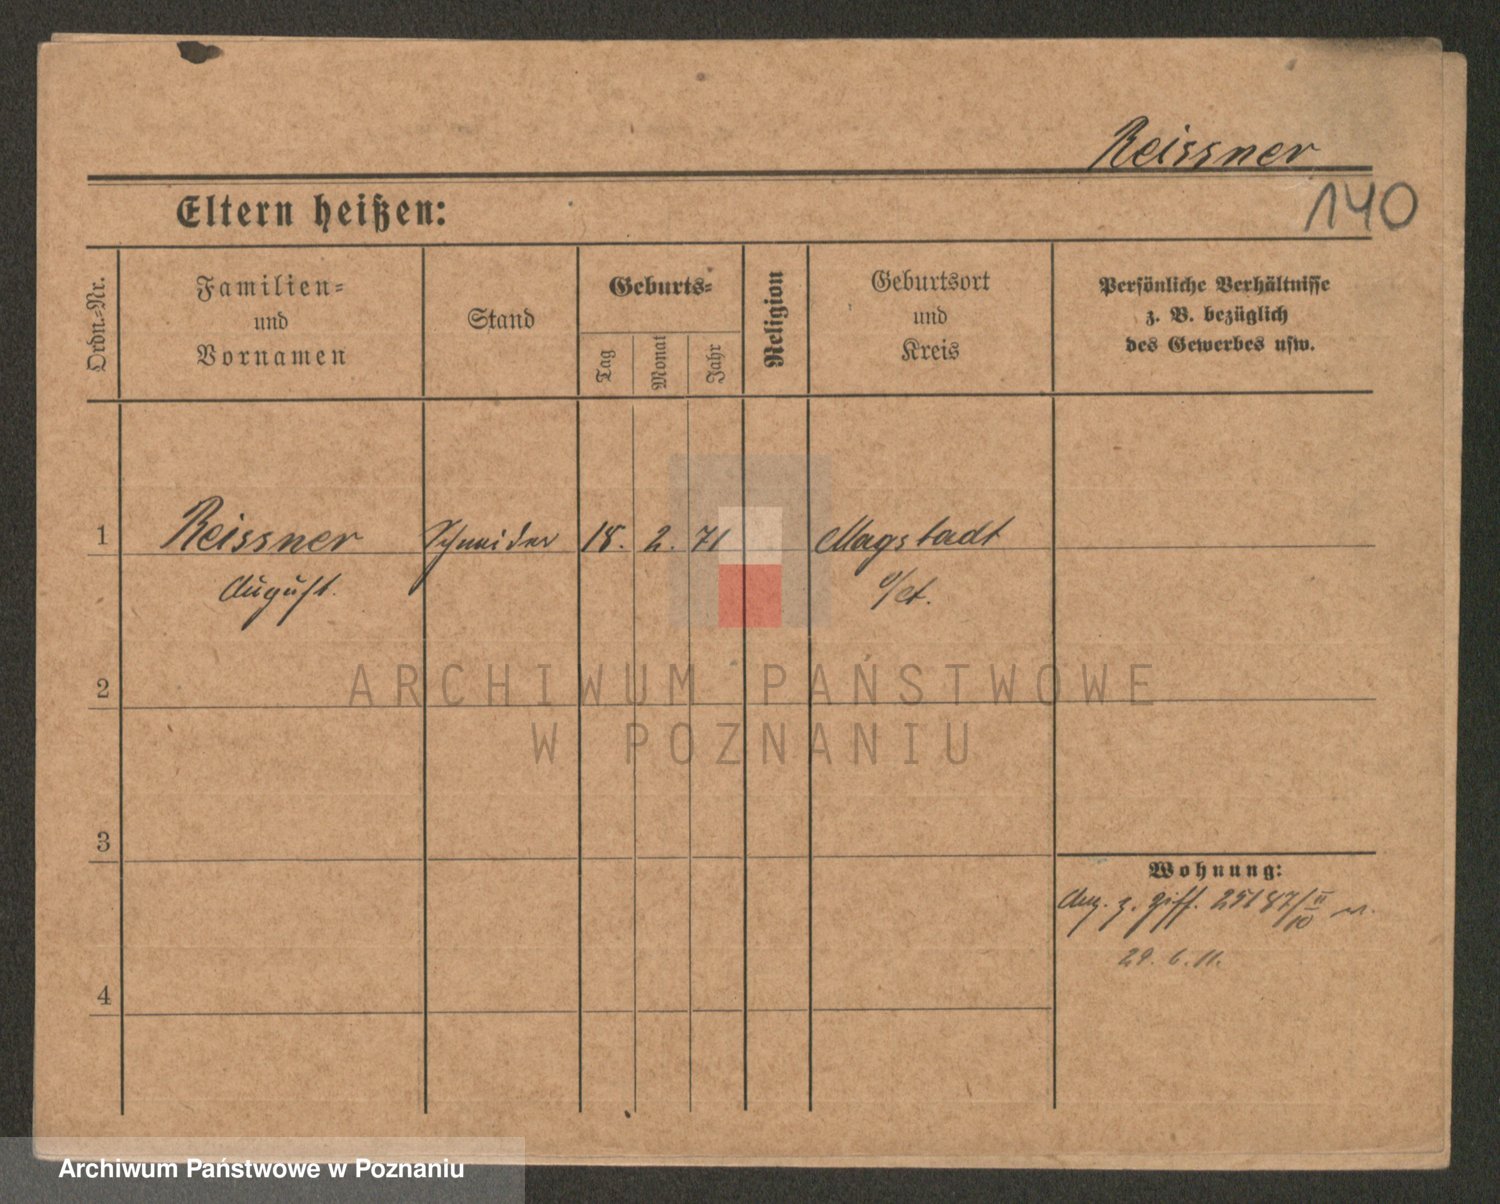 Reissner
140
Eltern heißen:
Ordn.-Nr.
Familien-
und
Vornamen
Stand
Geburts-
Tag
Monat
Jahr
Religion
Geburtsort
und
Kreis
Persönliche Verhältnisse
z. B. bezüglich
des Gewerbes usw.
1
Reissner
August.
Schneider
18. 2. 71
Magstadt
2
3
4
Wohnung:
z. 25187/II/10
29. 6. 11.
ARCHIWUM PAŃSTWOWE
W POZNANIU
Archiwum Państwowe w Poznaniu